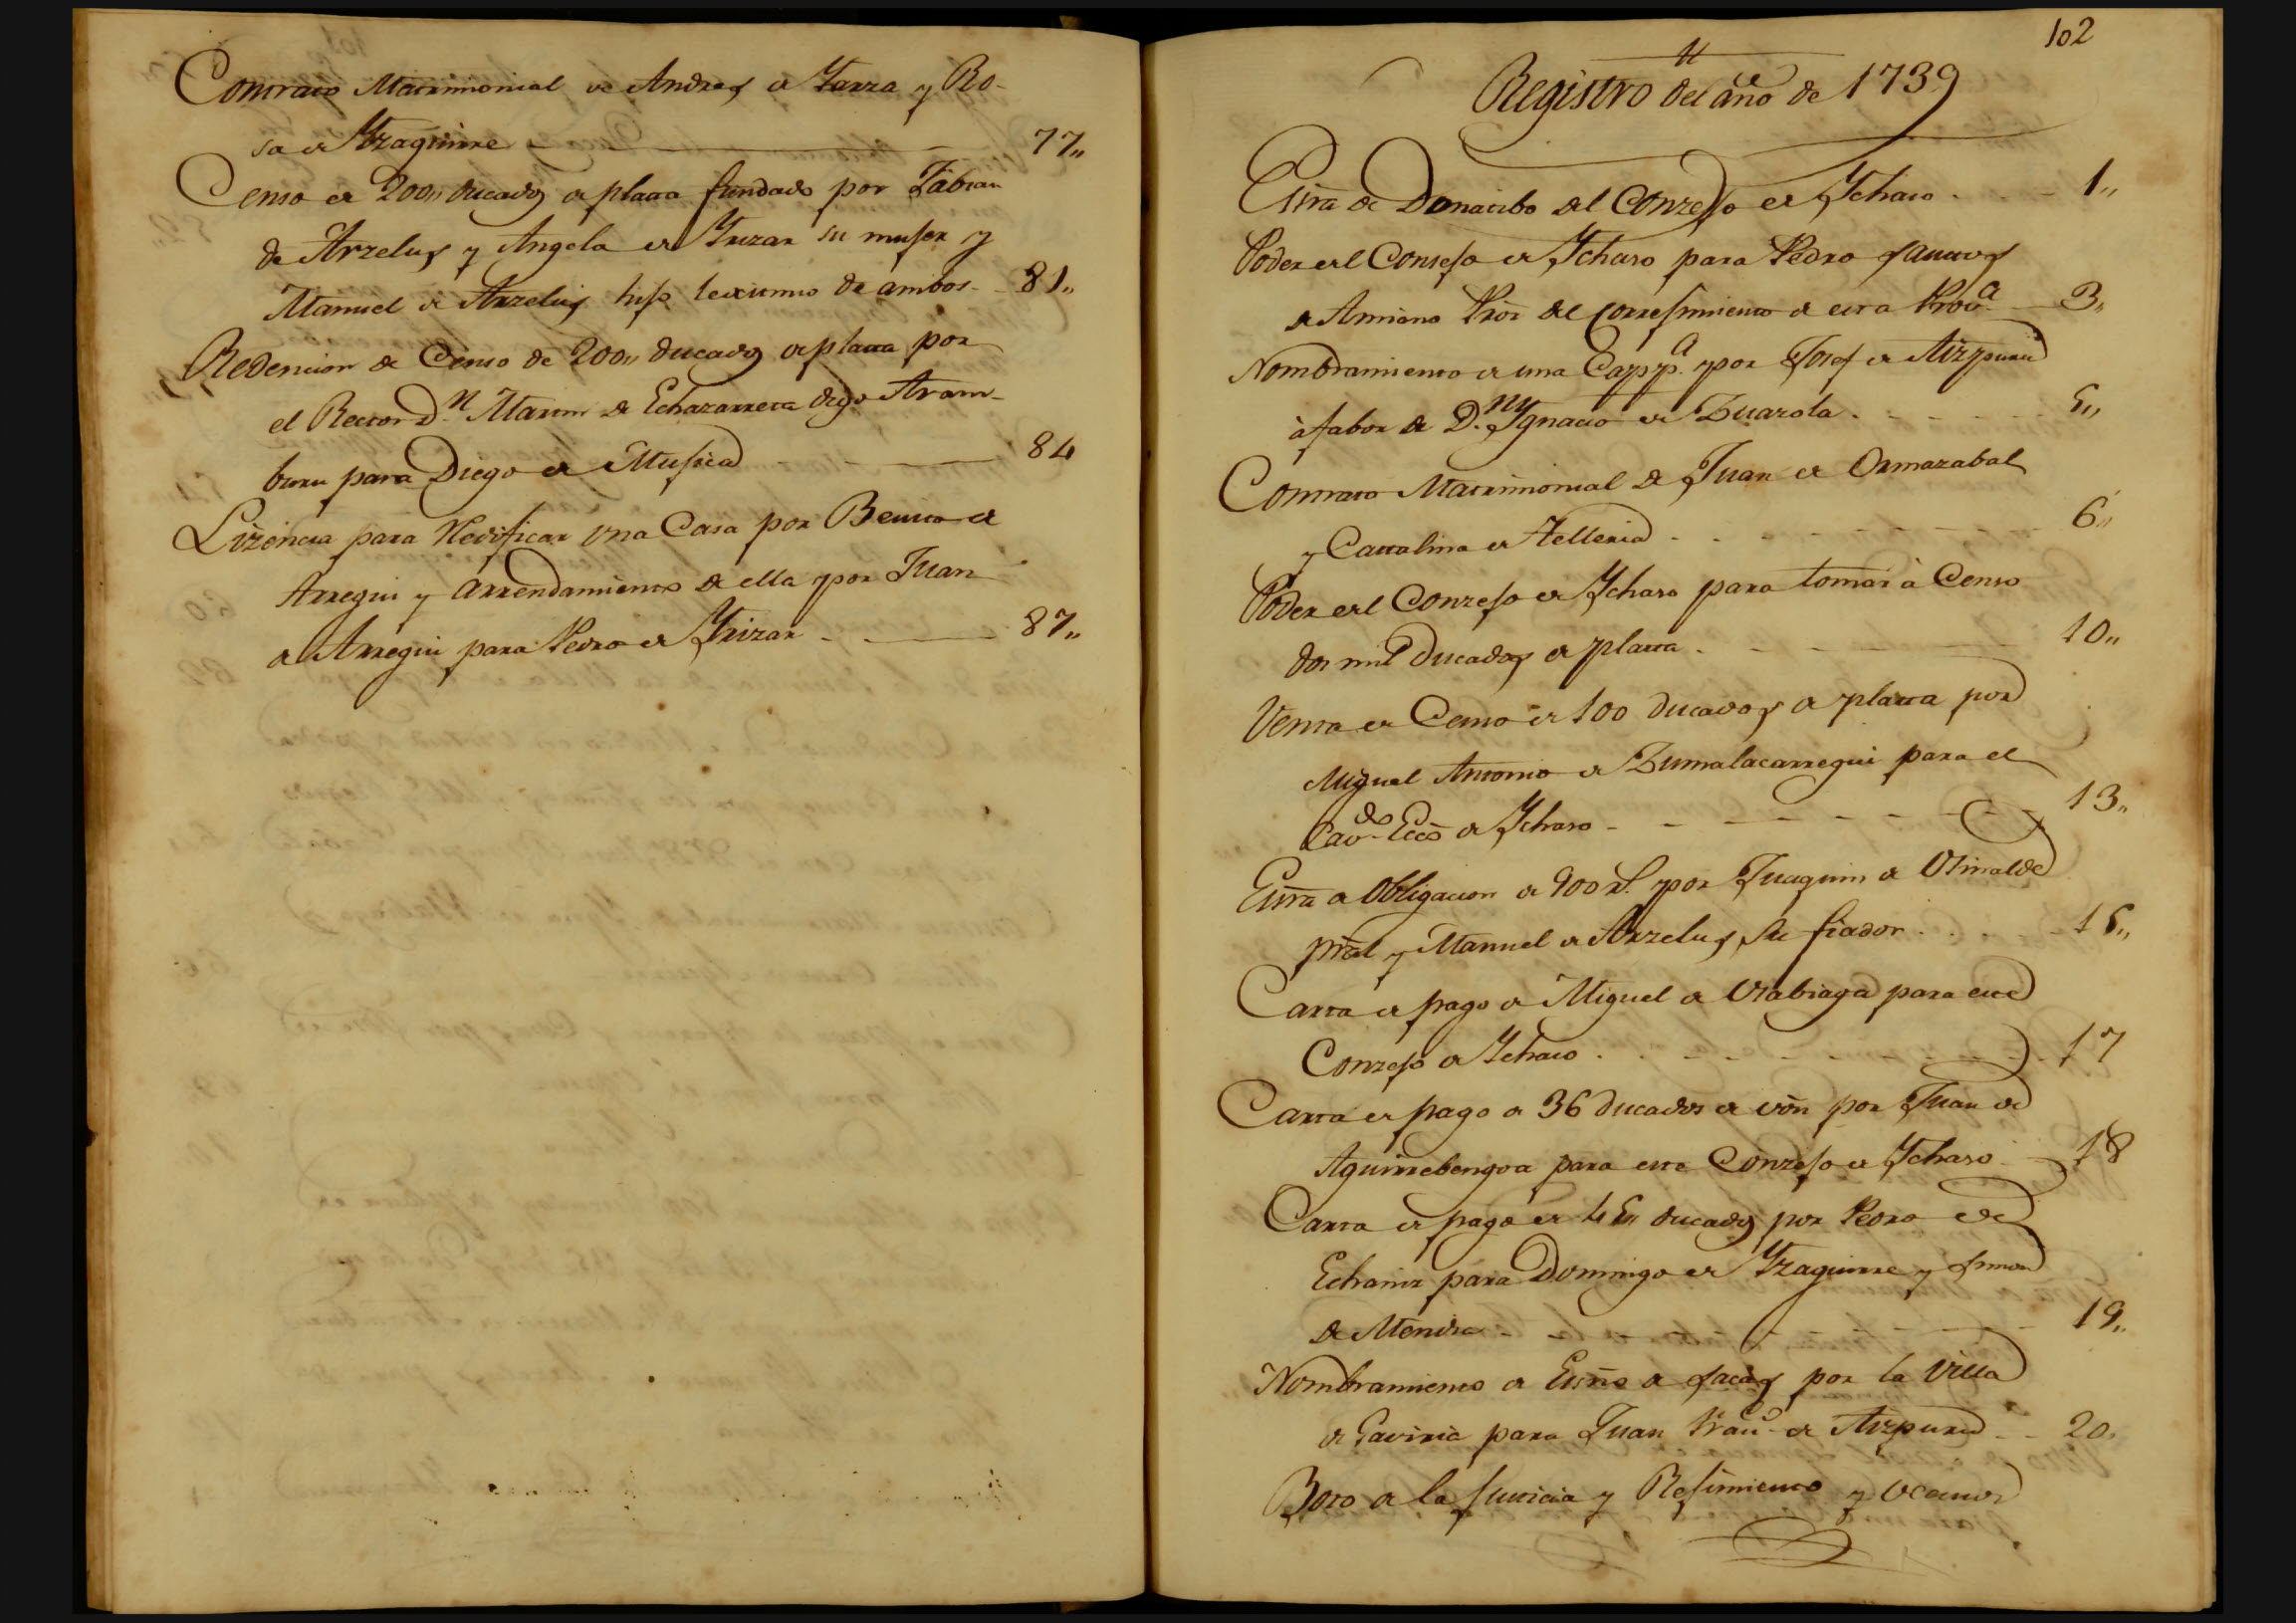 Contrato Matrimonial de Andres de Yarza y Ro-
sa de Yzaguirre 77,,
Censo de 200,, ducados de platta fundado por Fabian
de Arzelus y Angela de Yrizar su mujer y
Manuel de Arzelus hijo lexitimo de ambos 81,,
Redencion de Censo de 200,, ducados de platta por
el Rector D.n Martin de Echazarreta digo Aram-
buru para Diego de Mufica 84
Lizencia para Redificar vna Casa por Benito de
Arregui y Arrendamiento de ella por Juan
de Arregui para Pedro de Yrizar 87,,
102
Registro del año de 1739
Essra de Donatibo del Conzejo de Ychaso 1,,
Poder del Consejo de Ychaso para Pedro Santos
de Amiano Pror del Correjimiento de esta Prov.a 3,,
Nombramiento de una Capp.a por Josef de Aizpuru
à fabor de D.n Ygnacio de Zuazola 5,,
Contrato Matrimonial de Juan de Ormazabal
y Cattalina de Telleria 6,,
Poder del Conzejo de Ychaso para tomar à Censo
dos mil Ducados de platta 10,,
Venta de Censo de 100 ducados de platta por
Miguel Antonio de Zumalacarregui para el
Cav.do Ecco de Ychaso 13,,
Essra de Obligacion de 900 rs. por Juaquin de Vrinalde
pral y Manuel de Arzelus su fiador 15,,
Carta de pago de Miguel de Vrabiaga para este
Conzejo de Ychaso 17
Carta de pago de 36 ducados de von por Juan de
Aguirrebengoa para este Conzejo de Ychaso 18
Carta de pago de 45,, ducados por Pedro de
Echaniz para Domingo de Yzaguirre y Simon
de Mendia 19,,
Nombramiento de Essno de Sacas por la Villa
de Gaviria para Juan Frau.co de Aizpuru 20,
Boto de la Justicia y Rejimiento y vecinos